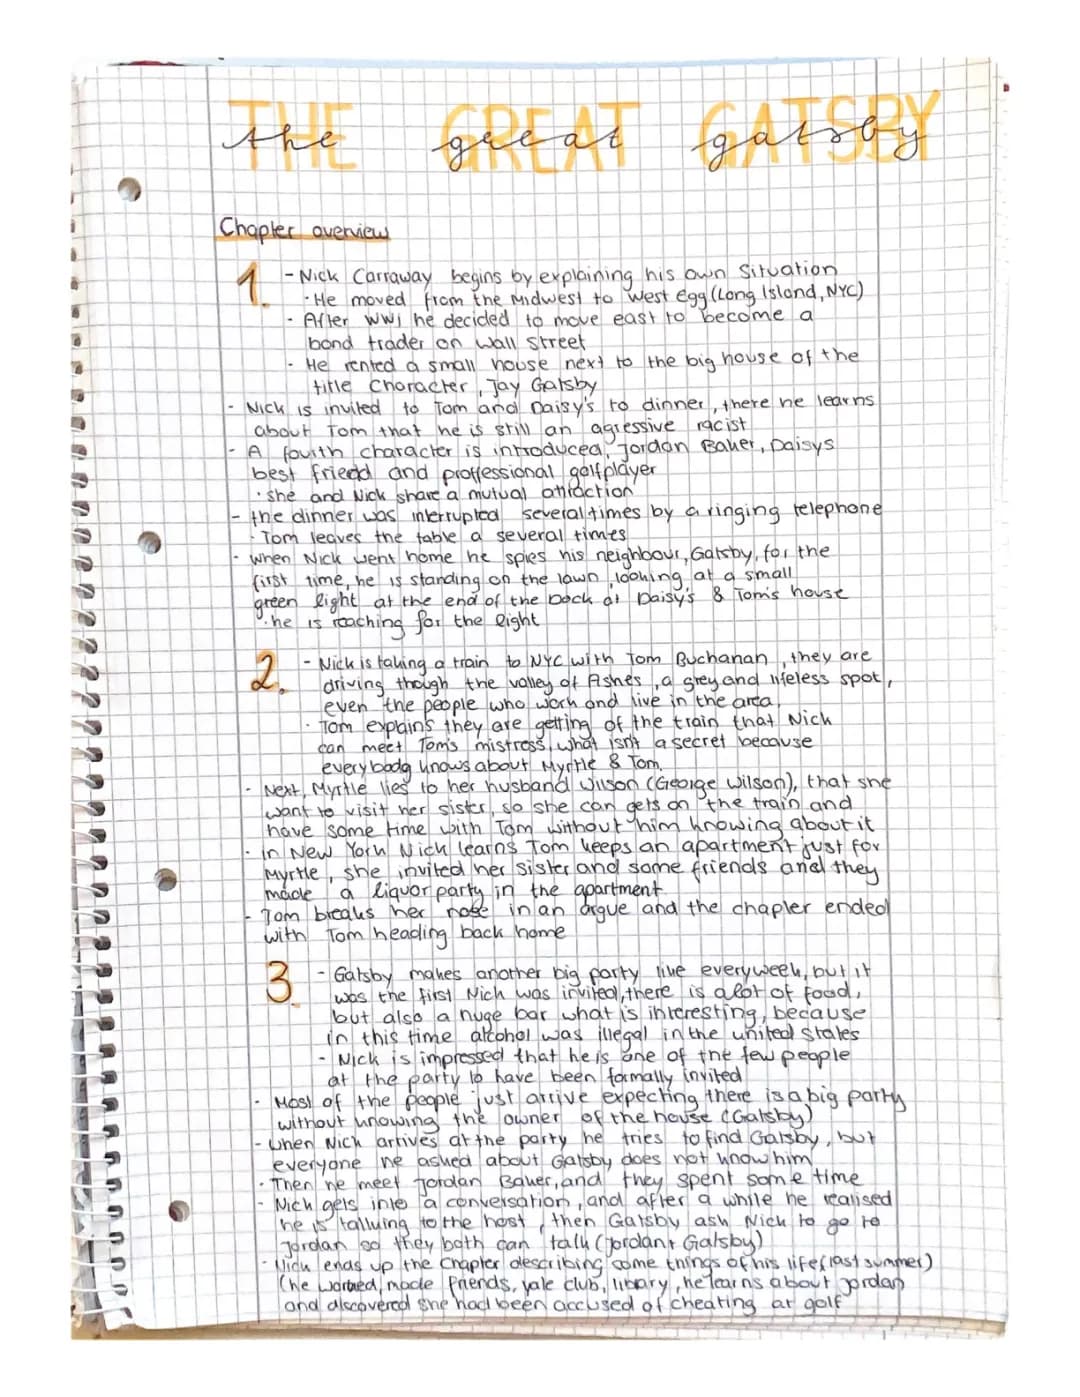 THE GREAT GATSBY
the great gatsby
Chapter overview
1. - Nick Carraway begins by explaining his own Situation
· He moved from the Midwest to West Egg (Long Island, NYC)
- After WW1 he decided to move east to become a
bond trader on Wall Street
- He rented a small house next to the big house of the
title Character, Jay Gatsby
- Nick is invited to Tom and Daisy's to dinner, there he learns
about Tom that he is still an agressive racist
- A fourth character is introduced, Jordan Baker, Daisys
best friend and proffessional golfplayer
· she and Nick share a mutual attraction
- the dinner was interrupted several times by a ringing telephone
· Tom leaves the table a several times
- when Nick went home he spies his neighbour, Gatsby, for the
first time, he is standing on the lawn, looking at a small
green light at the end of the Dock at Daisy's & Tom's house
· he is reaching for the light
2. - Nick is taking a train to NYC with Tom Buchanan, they are
driving though the valley of Ashes, a grey and lifeless spot,
even the people who work and live in the area.
· Tom expains they are getting of the train that Nick
can meet Tom's mistress, what isn't a secret because
everybody knows about Myrtle & Tom.
- Next, Myrtle lies to her husband Wilson (George Wilson), that she
want to visit her sister, so she can gets on the train and
have some time with Tom without him knowing about it
- in New York Nick learns Tom keeps an apartment just for
Myrtle, she invited her sister and some friends and they
made a liquor party in the apartment
- Tom breaks her nose in an argue and the chapter ended
with Tom heading back home
3. - Gatsby makes another big party like everyweek, but it
was the first Nick was invited, there is a lot of food,
but also a huge bar what is interesting, because
in this time alcohol was illegal in the united states
- Nick is impressed that he is one of the few people
at the party to have been formally invited
- Most of the people just arrive expecting there is a big party
without knowing the owner of the house (Gatsby)
- when Nick arrives at the party he tries to find Gatsby, but
everyone he asked about Gatsby does not know him
· Then he meet Jordan Baker, and they spent some time
- Nick gets into a conversation, and after a while he realised
he is talking to the host, then Gatsby ask Nick to go to
Jordan so they both can talk (Jordan + Gatsby)
- Nick ends up the Chapter describing some things of his life (last summer)
(he worked, made friends, yale club, library, he learns about Jordan
and discovered she had been accused of cheating at golf